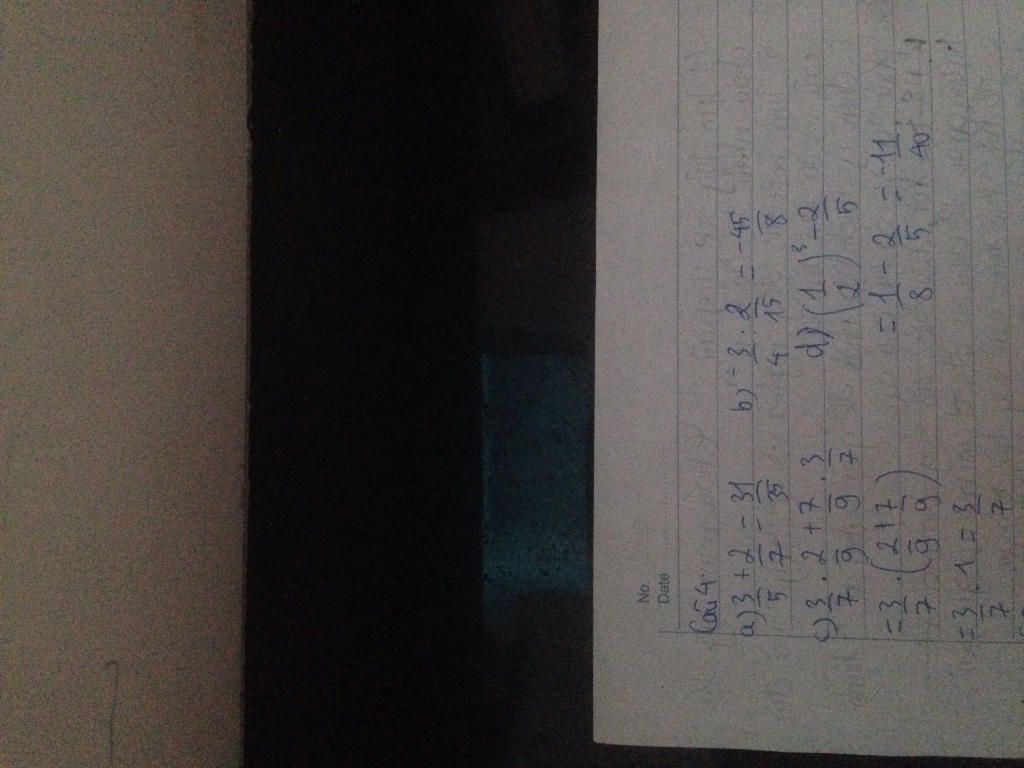 No.
Date
Câu 4:
a) 3/5 + 2/7 = 31/35 b) -3/4 . 2/15 = -45/8
c) 3/7 . 2/9 + 7/9 . 3/7 d) (1/2)³ - 2/5
= 3/7 . (2/9 + 7/9) = 1/8 - 2/5 = -11/40
= 3/7 . 1 = 3/7